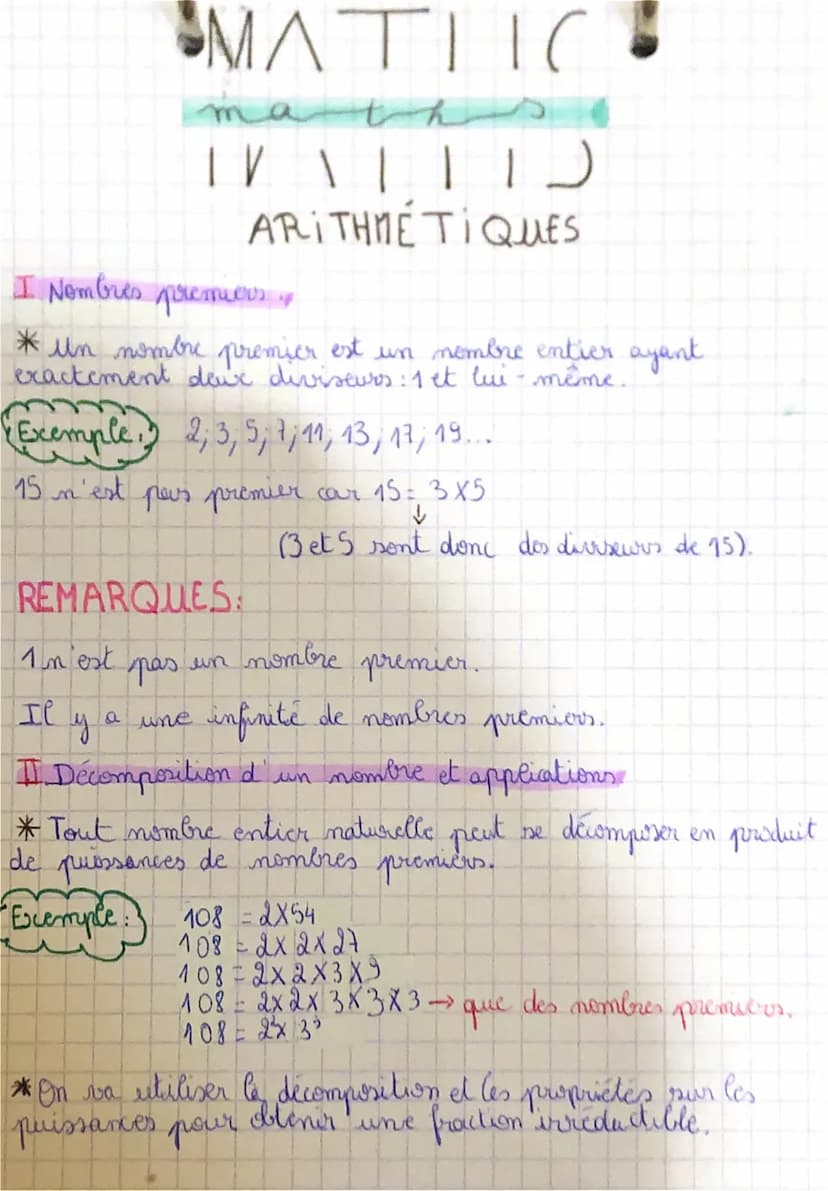 maths
ARiTHMÉTiQUES
I Nombres premiers.
* Un nombre premier est un nombre entier ayant
exactement deux diviseurs : 1 et lui-même.
Exemple : 2; 3, 5; 7; 11; 13; 17; 19...
15 n'est pas premier car 15 = 3 X 5
↓
(3 et 5 sont donc des diviseurs de 15).
REMARQUES:
1 n'est pas un nombre premier.
Il y a une infinité de nombres premiers.
II Décomposition d'un nombre et applications
* Tout nombre entier naturelle peut se décomposer en produit
de puissances de nombres premiers.
Exemple : 108 = 2X54
108 = 2x2x27
108 = 2x2x3x9
108 = 2x2x3x3x3 → que des nombres premiers.
108 = 2²x 3³
* On va utiliser la décomposition et les propriétés sur les
puissances pour obtenir une fraction irréductible.